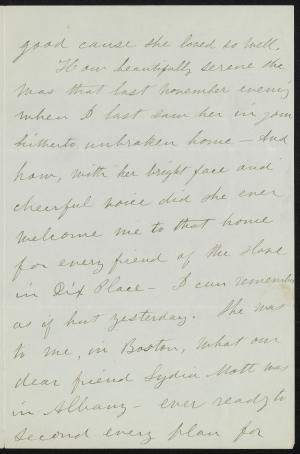 good cause she loved so well.
How beautifully serene she
was that last November evening
when I last saw her in your
hitherto unbroken home – And
how, with her bright face and
cheerful voice did she ever
welcome me to that home
for every friend of the slave
in Dix Place – I can remember
as if but yesterday. She was
to me, in Boston, what our
dear friend Lydia Mott was
in Albany – ever ready to
second every plan for